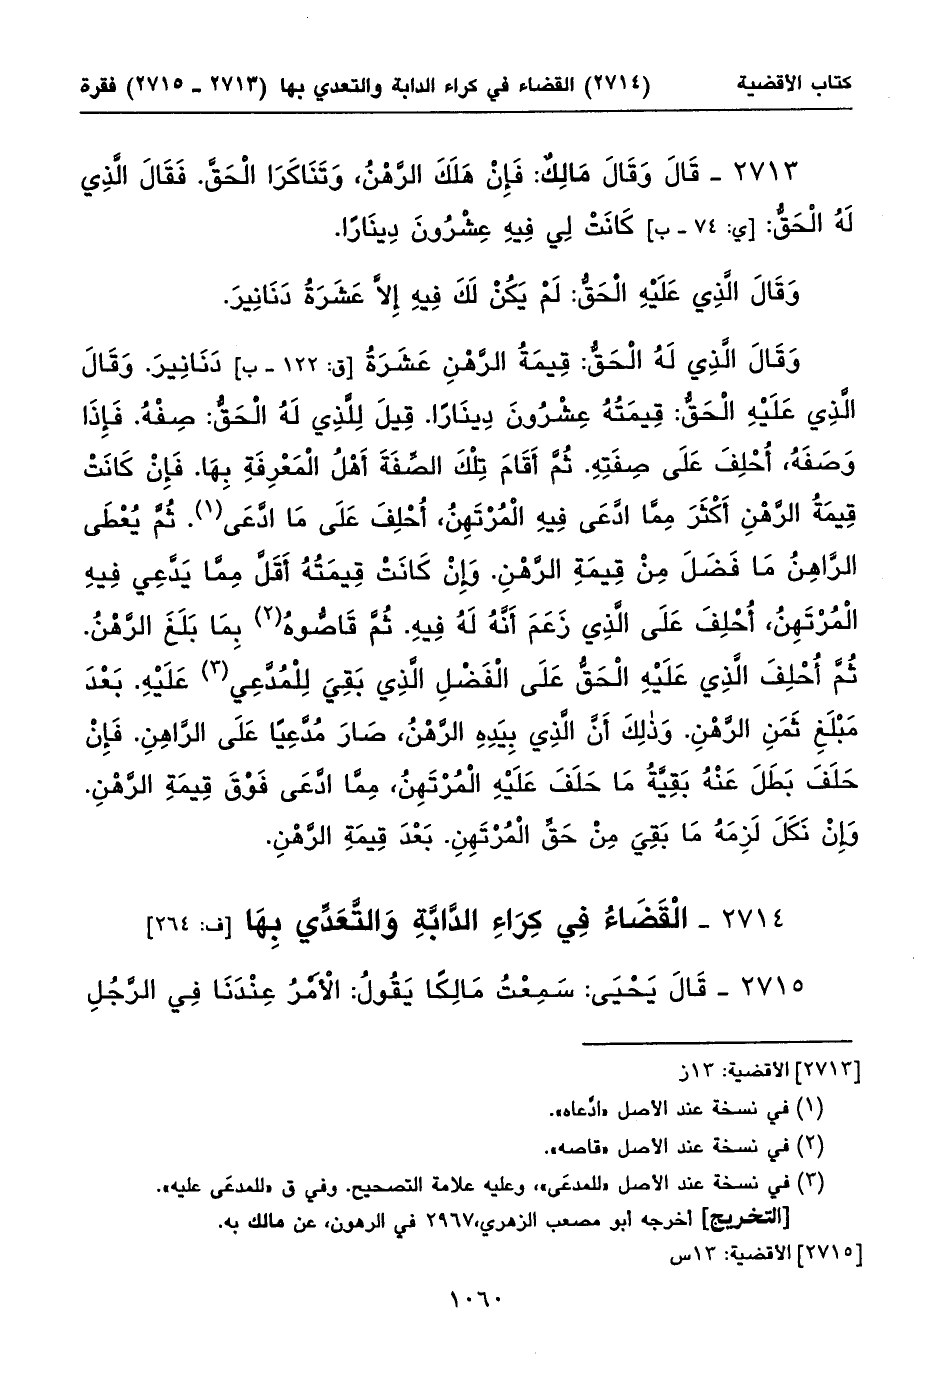 كتاب الاقضية (٢٧١٤) القضاء في كراء الدابة والتعدي بها (٢٧١٣ - ٢٧١٥) فقرة
٢٧١٣ - قَالَ وَقَالَ مَالِكٌ: فَإِنْ هَلَكَ الرَّهْنُ، وَتَنَاكَرَا الْحَقَّ. فَقَالَ الَّذِي
لَهُ الْحَقُّ: [ي: ٧٤ - ب] كَانَتْ لِي فِيهِ عِشْرُونَ دِينَارًا.
وَقَالَ الَّذِي عَلَيْهِ الْحَقُّ: لَمْ يَكُنْ لَكَ فِيهِ إِلاَّ عَشَرَةُ دَنَانِيرَ.
وَقَالَ الَّذِي لَهُ الْحَقُّ: قِيمَةُ الرَّهْنِ عَشَرَةُ [ق: ١٢٢ - ب] دَنَانِيرَ. وَقَالَ
الَّذِي عَلَيْهِ الْحَقُّ: قِيمَتُهُ عِشْرُونَ دِينَارًا. قِيلَ لِلَّذِي لَهُ الْحَقُّ: صِفْهُ. فَإِذَا
وَصَفَهُ، أُحْلِفَ عَلَى صِفَتِهِ. ثُمَّ أَقَامَ تِلْكَ الصِّفَةَ أَهْلُ الْمَعْرِفَةِ بِهَا. فَإِنْ كَانَتْ
قِيمَةُ الرَّهْنِ أَكْثَرَ مِمَّا ادَّعَى فِيهِ الْمُرْتَهِنُ، أُحْلِفَ عَلَى مَا ادَّعَى(١). ثُمَّ يُعْطَى
الرَّاهِنُ مَا فَضَلَ مِنْ قِيمَةِ الرَّهْنِ. وَإِنْ كَانَتْ قِيمَتُهُ أَقَلَّ مِمَّا يَدَّعِي فِيهِ
الْمُرْتَهِنُ، أُحْلِفَ عَلَى الَّذِي زَعَمَ أَنَّهُ لَهُ فِيهِ. ثُمَّ قَاصُّوهُ(٢) بِمَا بَلَغَ الرَّهْنُ.
ثُمَّ أُحْلِفَ الَّذِي عَلَيْهِ الْحَقُّ عَلَى الْفَضْلِ الَّذِي بَقِيَ لِلْمُدَّعِي(٣) عَلَيْهِ. بَعْدَ
مَبْلَغِ ثَمَنِ الرَّهْنِ. وَذٰلِكَ أَنَّ الَّذِي بِيَدِهِ الرَّهْنُ، صَارَ مُدَّعِيًا عَلَى الرَّاهِنِ. فَإِنْ
حَلَفَ بَطَلَ عَنْهُ بَقِيَّةُ مَا حَلَفَ عَلَيْهِ الْمُرْتَهِنُ، مِمَّا ادَّعَى فَوْقَ قِيمَةِ الرَّهْنِ.
وَإِنْ نَكَلَ لَزِمَهُ مَا بَقِيَ مِنْ حَقِّ الْمُرْتَهِنِ. بَعْدَ قِيمَةِ الرَّهْنِ.
٢٧١٤ - الْقَضَاءُ فِي كِرَاءِ الدَّابَّةِ وَالتَّعَدِّي بِهَا [ف: ٢٦٤]
٢٧١٥ - قَالَ يَحْيَى: سَمِعْتُ مَالِكًا يَقُولُ: الْأَمْرُ عِنْدَنَا فِي الرَّجُلِ
[٢٧١٣] الاقضية: ١٣ز
(١) في نسخة عند الاصل «ادَّعاه».
(٢) في نسخة عند الاصل «قاصه».
(٣) في نسخة عند الاصل «للمدعَى»، وعليه علامة التصحيح. وفي ق «للمدعَى عليه».
[التخريج] أخرجه أبو مصعب الزهري،٢٩٦٧ في الرهون، عن مالك به.
[٢٧١٥] الاقضية: ١٣س
١٠٦٠